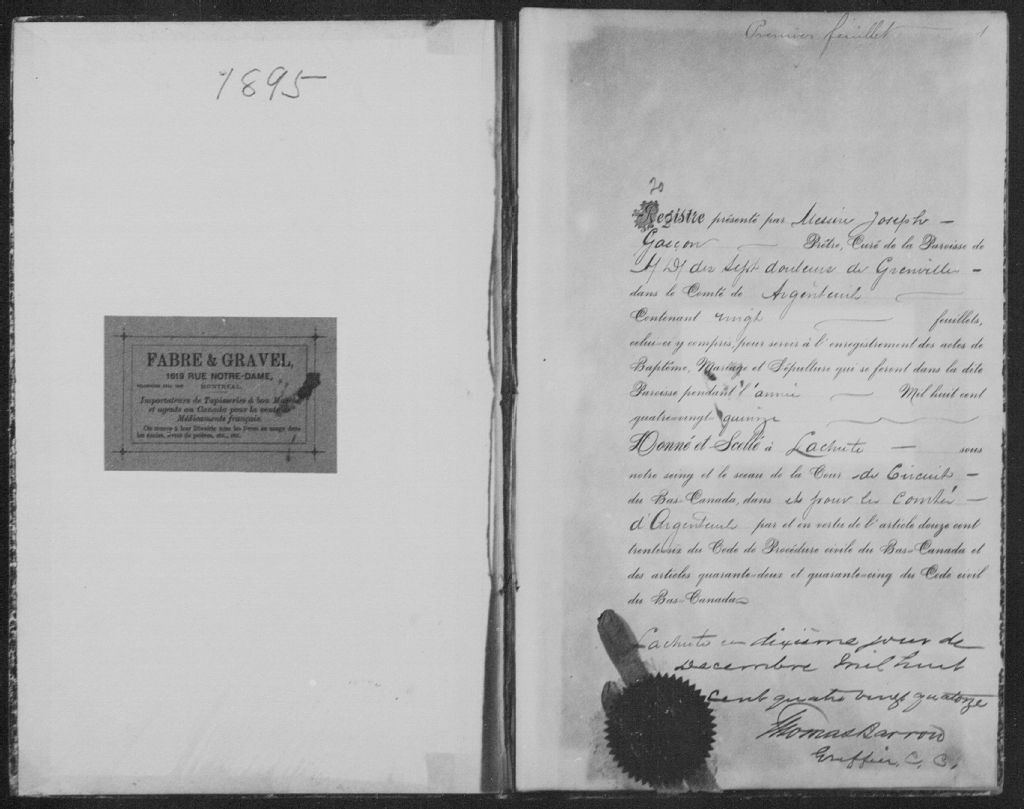 1895
FABRE & GRAVEL,
1619 RUE NOTRE-DAME,
MONTREAL,
Importateurs de Tapisseries à bon
et agents au Canada pour la vente
Médicaments français.
Premier feuillet
1
20
Registre présenté par Messire Joseph
Gascon Prêtre, Curé de la Paroisse de
N. D. des Sept douleurs de Grenville
dans le Comté de Argenteuil
Contenant vingt feuillets,
celui-ci y compris, pour servir à l'enregistrement des actes de
Baptême, Mariage et Sépulture qui se feront dans la dite
Paroisse pendant l'année Mil huit cent
quatre-vingt quinze
Donné et Scellé à Lachute sous
notre seing et le sceau de la Cour de Circuit
du Bas-Canada, dans et pour le comté
d'Argenteuil par et en vertu de l'article douze cent
trente-six du Code de Procédure civile du Bas-Canada et
des articles quarante-deux et quarante-cinq du Code civil
du Bas-Canada
Lachute ce dixième jour de
Decembre Mil huit
cent quatre vingt quatorze
Thomas Barron
Greffier, C. C.